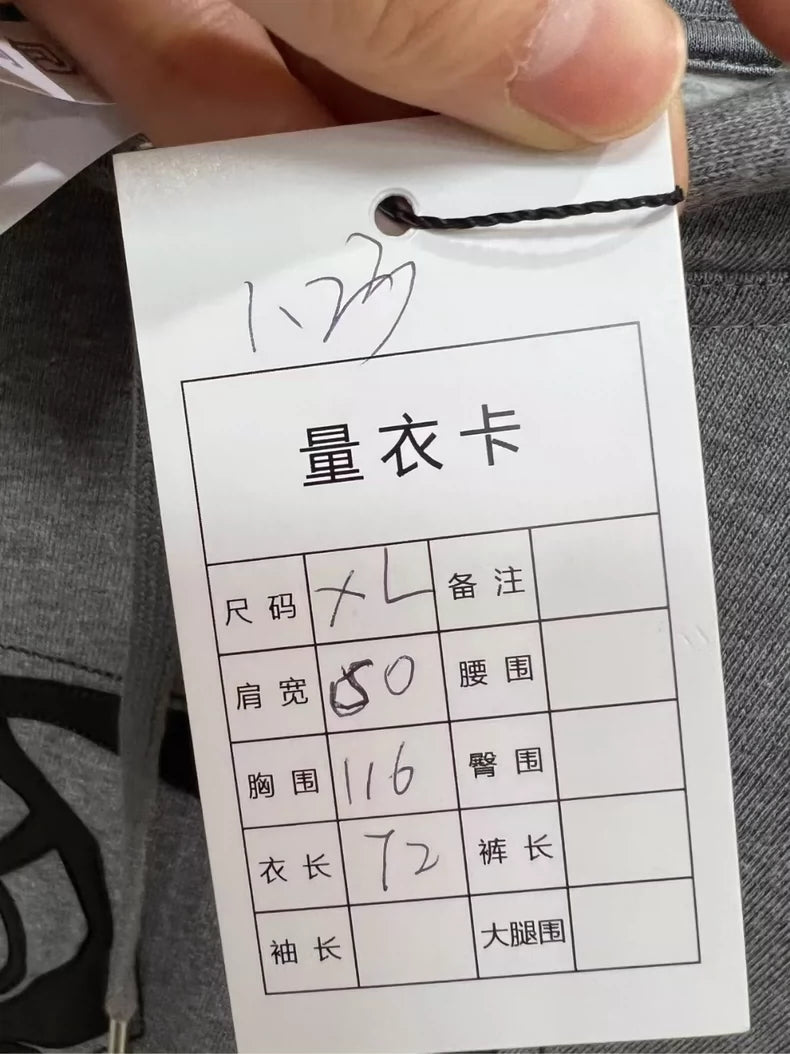 量衣卡
尺码 XL 备注
肩宽 50 腰围
胸围 116 臀围
衣长 72 裤长
袖长 大腿围